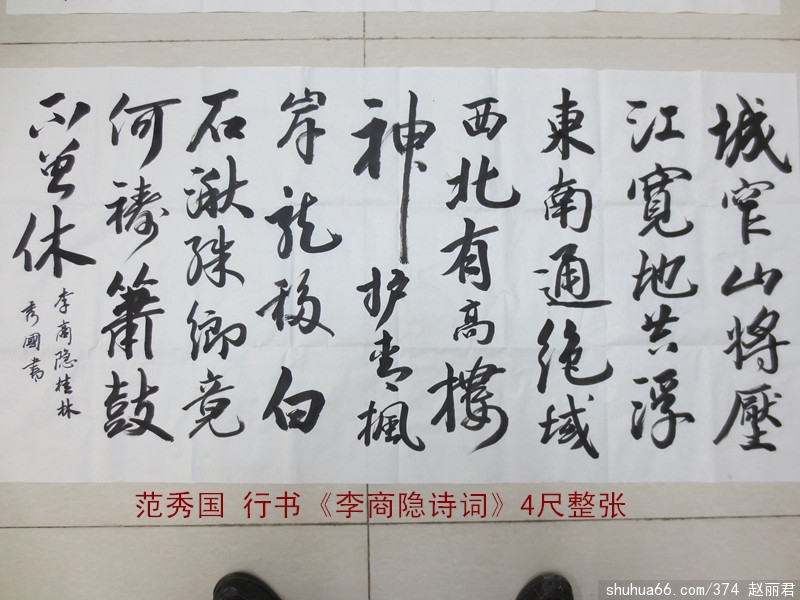 城窄山將壓
江寬地共浮
東南通絶域
西北有高樓
神护青楓
岸龍移白
石湫殊鄉竟
何禱簫鼓
不曾休
李商隐桂林
秀國書
范秀国 行书《李商隐诗词》4尺整张
shuhua66.com/374 赵丽君